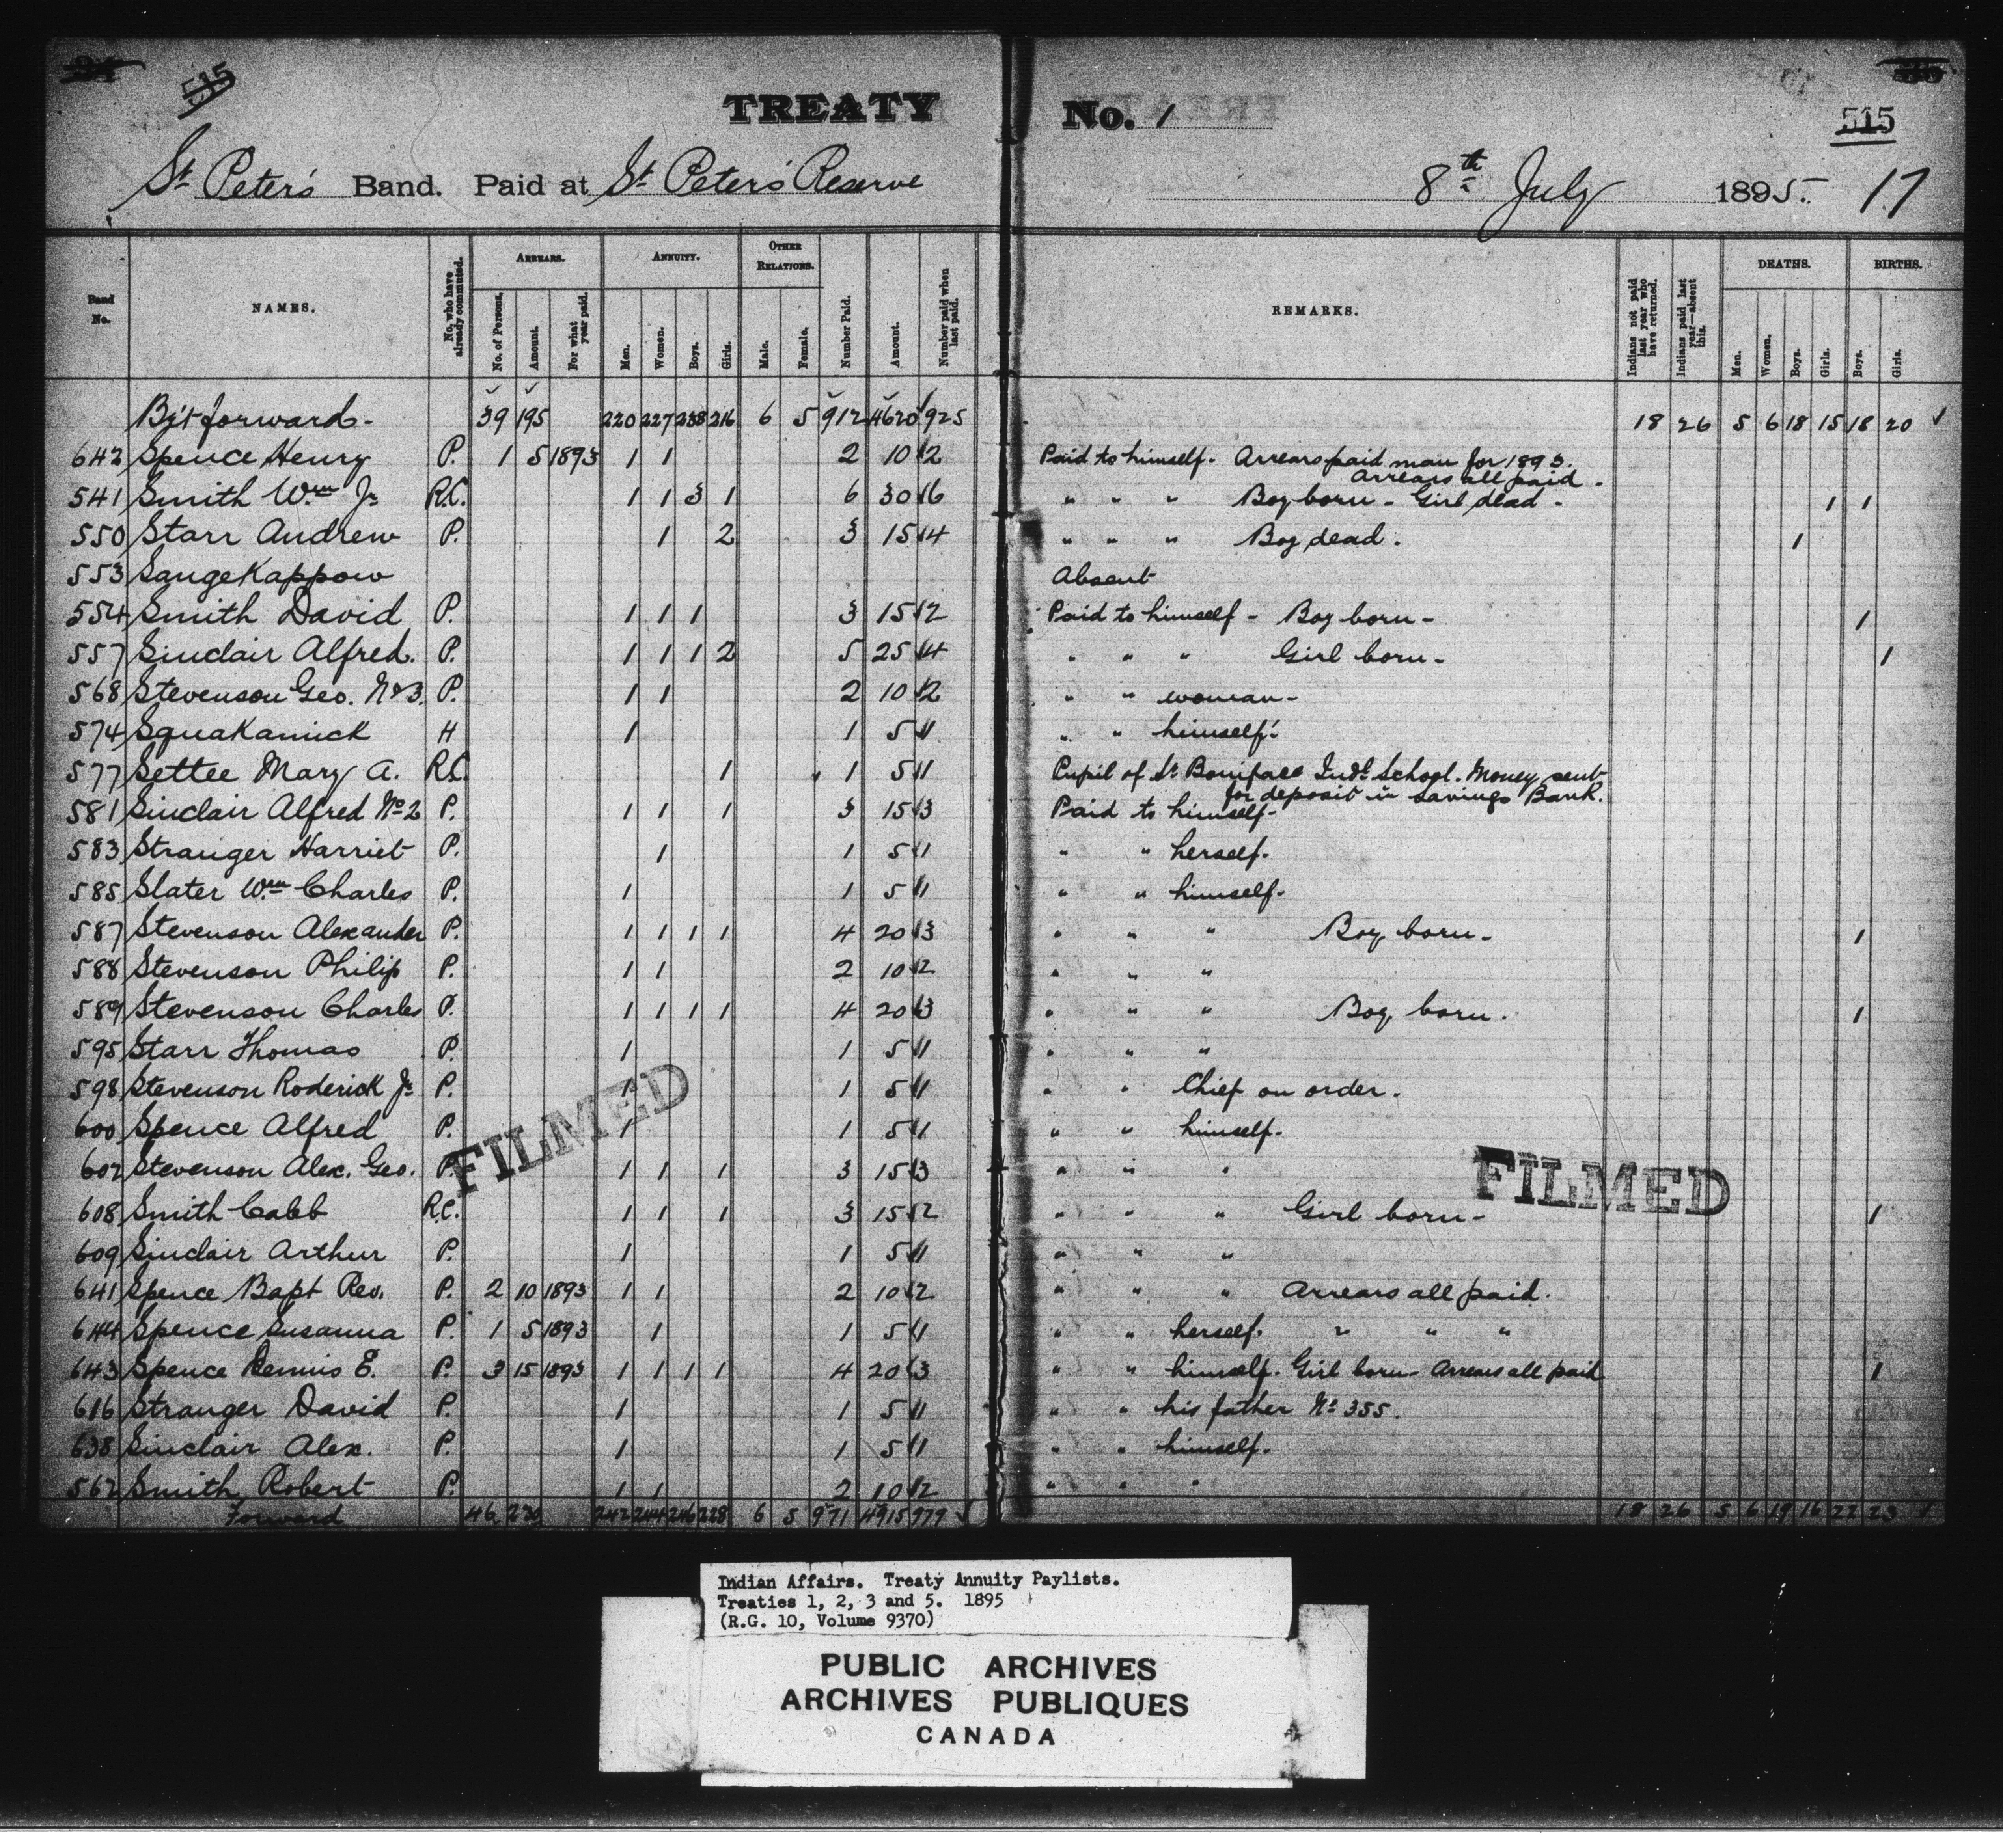 515
TREATY No. 1
515
St Peter's Band. Paid at St Peter's Reserve 8th July 1895. 17
Band No. NAMES. No. who have already commuted. ARREARS. No. of Persons. Amount. For what year paid. ANNUITY. Men. Women. Boys. Girls. OTHER RELATIONS. Male. Female. Number Paid. Amount. Number paid when last paid. REMARKS. Indians not paid last year who have returned. Indians paid last year—absent this. DEATHS. Men. Women. Boys. Girls. BIRTHS. Boys. Girls.
Bt forward- 39 195 220 227 238 216 6 5 912 4620 925 18 26 5 6 18 15 18 20 ✓
642 Spence Henry P. 1 5 1893 1 1 2 10 2 Paid to himself. Arrears paid man for 1893. Arrears all paid.
541 Smith Wm Jr R.C. 1 1 3 1 6 30 6 " " " Boy born - Girl dead - 1 1
550 Starr Andrew P. 1 2 3 15 4 " " " Boy dead. 1
553 Sangekappow Absent
554 Smith David P. 1 1 1 3 15 2 Paid to himself - Boy born - 1
557 Sinclair Alfred. P. 1 1 1 2 5 25 4 " " " Girl born - 1
568 Stevenson Geo. No 3. P. 1 1 2 10 2 " " woman -
574 Squakamick H 1 1 5 1 " " himself.
577 Settee Mary A. R.C. 1 1 5 1 Pupil of St Boniface Indl School. Money sent for deposit in Savings Bank.
581 Sinclair Alfred No 2 P. 1 1 1 3 15 3 Paid to himself -
583 Stranger Harriet P. 1 1 5 1 " " herself.
585 Slater Wm Charles P. 1 1 5 1 " " himself.
587 Stevenson Alexander P. 1 1 1 1 4 20 3 " " " Boy born - 1
588 Stevenson Philip P. 1 1 2 10 2 " " "
589 Stevenson Charles P. 1 1 1 1 4 20 3 " " " Boy born. 1
595 Starr Thomas P. 1 1 5 1 " " "
598 Stevenson Roderick Jr P. 1 1 5 1 " " Chief on order.
600 Spence Alfred P. 1 1 5 1 " " himself.
602 Stevenson Alex. Geo. P. 1 1 1 3 15 3 " " "
FILMED
FILMED
608 Smith Caleb R.C. 1 1 1 3 15 2 " " " Girl born - 1
609 Sinclair Arthur P. 1 1 5 1 " " "
641 Spence Bapt Rev. P. 2 10 1893 1 1 2 10 2 " " " Arrears all paid.
644 Spence Susanna P. 1 5 1893 1 1 5 1 " " herself. " " "
643 Spence Rennis E. P. 3 15 1893 1 1 1 1 4 20 3 " " himself. Girl born - Arrears all paid 1
616 Stranger David P. 1 1 5 1 " " his father No 355.
638 Sinclair Alex. P. 1 1 5 1 " " himself.
562 Smith Robert P. 1 1 2 10 2 " " "
Forward 46 230 242 244 246 228 6 5 971 4915 979 ✓ 18 26 5 6 19 16 22 23 ✓
Indian Affairs. Treaty Annuity Paylists.
Treaties 1, 2, 3 and 5. 1895
(R.G. 10, Volume 9370)
PUBLIC ARCHIVES
ARCHIVES PUBLIQUES
CANADA